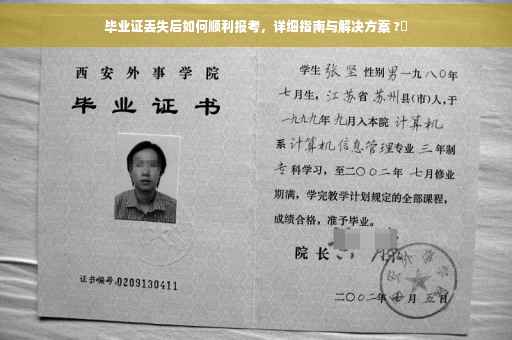 毕业证丢失后如何顺利报考，详细指南与解决方案？
西安外事学院
毕业证书
证书编号:0209130411
学生 张坚 性别 男 一九八〇年
七月生，江苏省 苏州县(市)人，于
一九九九年 九月入本院 计算机
系 计算机信息管理专业 三 年制
专 科学习，至二〇〇二年 七月修业
期满，学完教学计划规定的全部课程，
成绩合格，准予毕业。
院 长
二〇〇二年 七 月 五 日